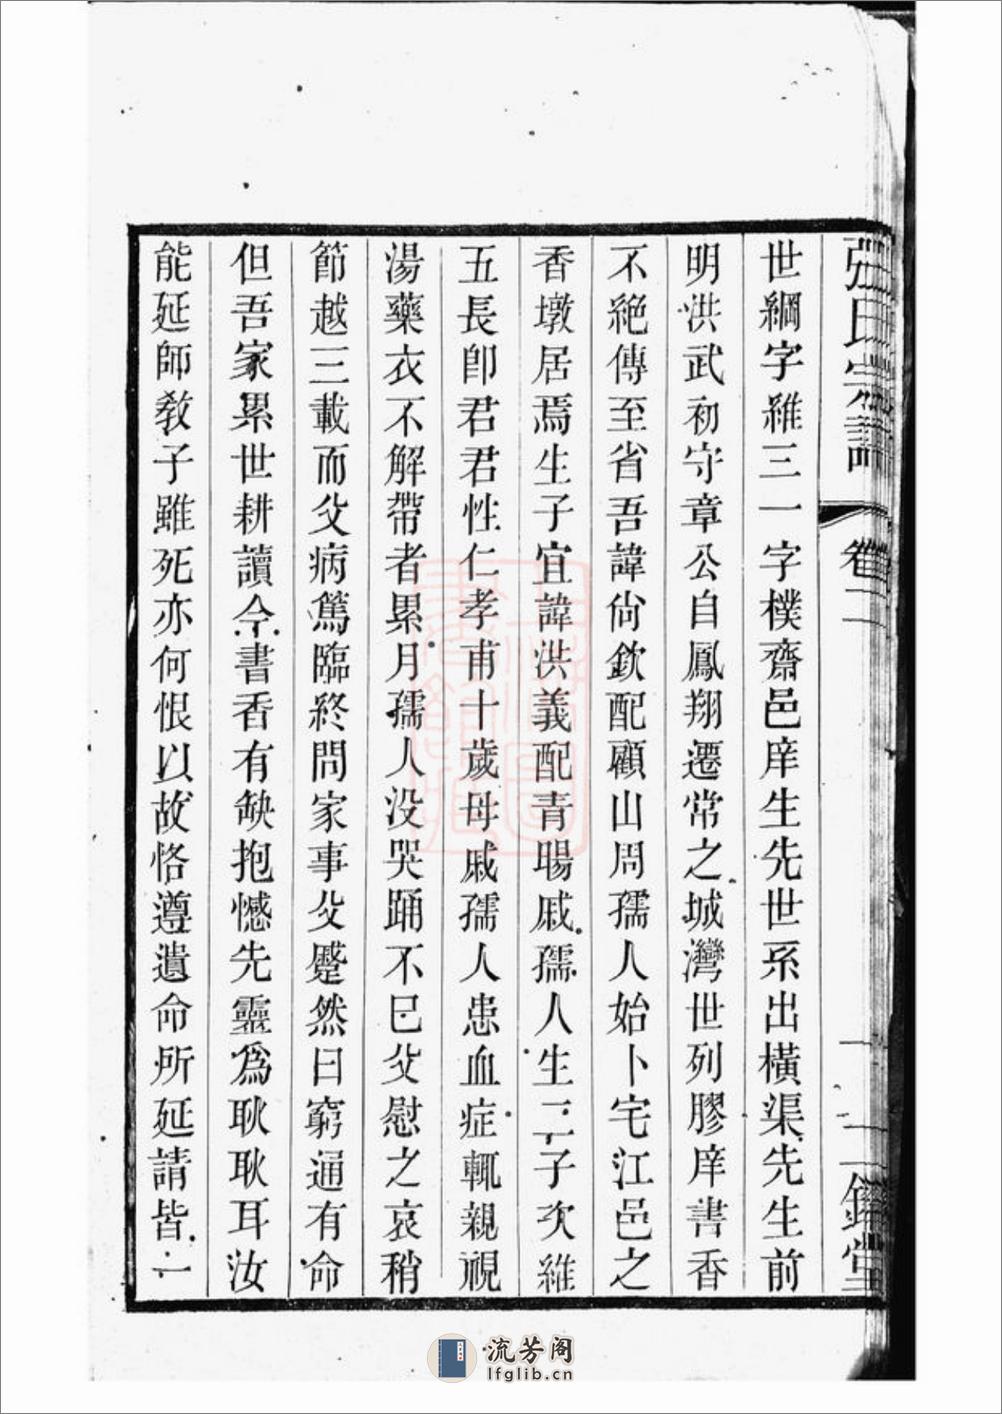 張氏宗譜
卷二
世綱字維三一字樸齋邑庠生先世系出橫渠先生前
明洪武初守章公自鳳翔遷常之城灣世列膠庠書香
不絶傳至省吾諱尙欽配顧山周孺人始卜宅江邑之
香墩居焉生子宜諱洪義配青暘戚孺人生二子次維
五長卽君君性仁孝甫十歲母戚孺人患血症輒親視
湯藥衣不解帶者累月孺人没哭踊不已父慰之哀稍
節越三載而父病篤臨終問家事父蹙然曰窮通有命
但吾家累世耕讀今書香有缺抱憾先靈爲耿耿耳汝
能延師敎子雖死亦何恨以故恪遵遺命所延請皆一
流芳阁
lfglib.cn